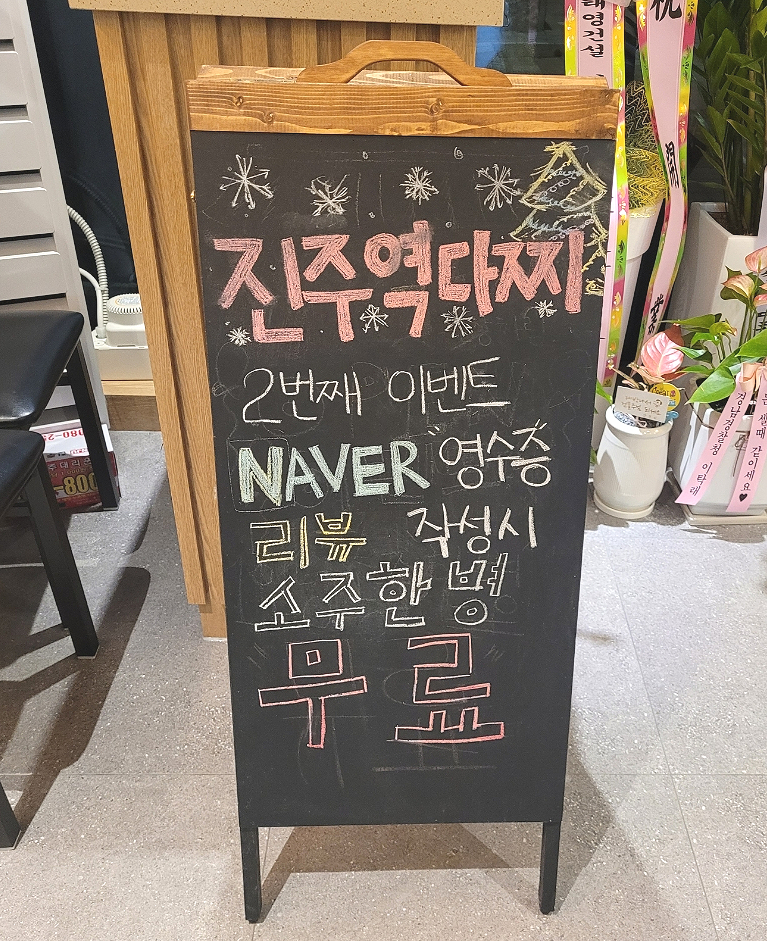 진주역다찌
2번째 이벤트
NAVER 영수증
리뷰 작성시
소주한병
무료
태영건설
祝
경남경찰청 이탁래
같이세요♥
080-2
800